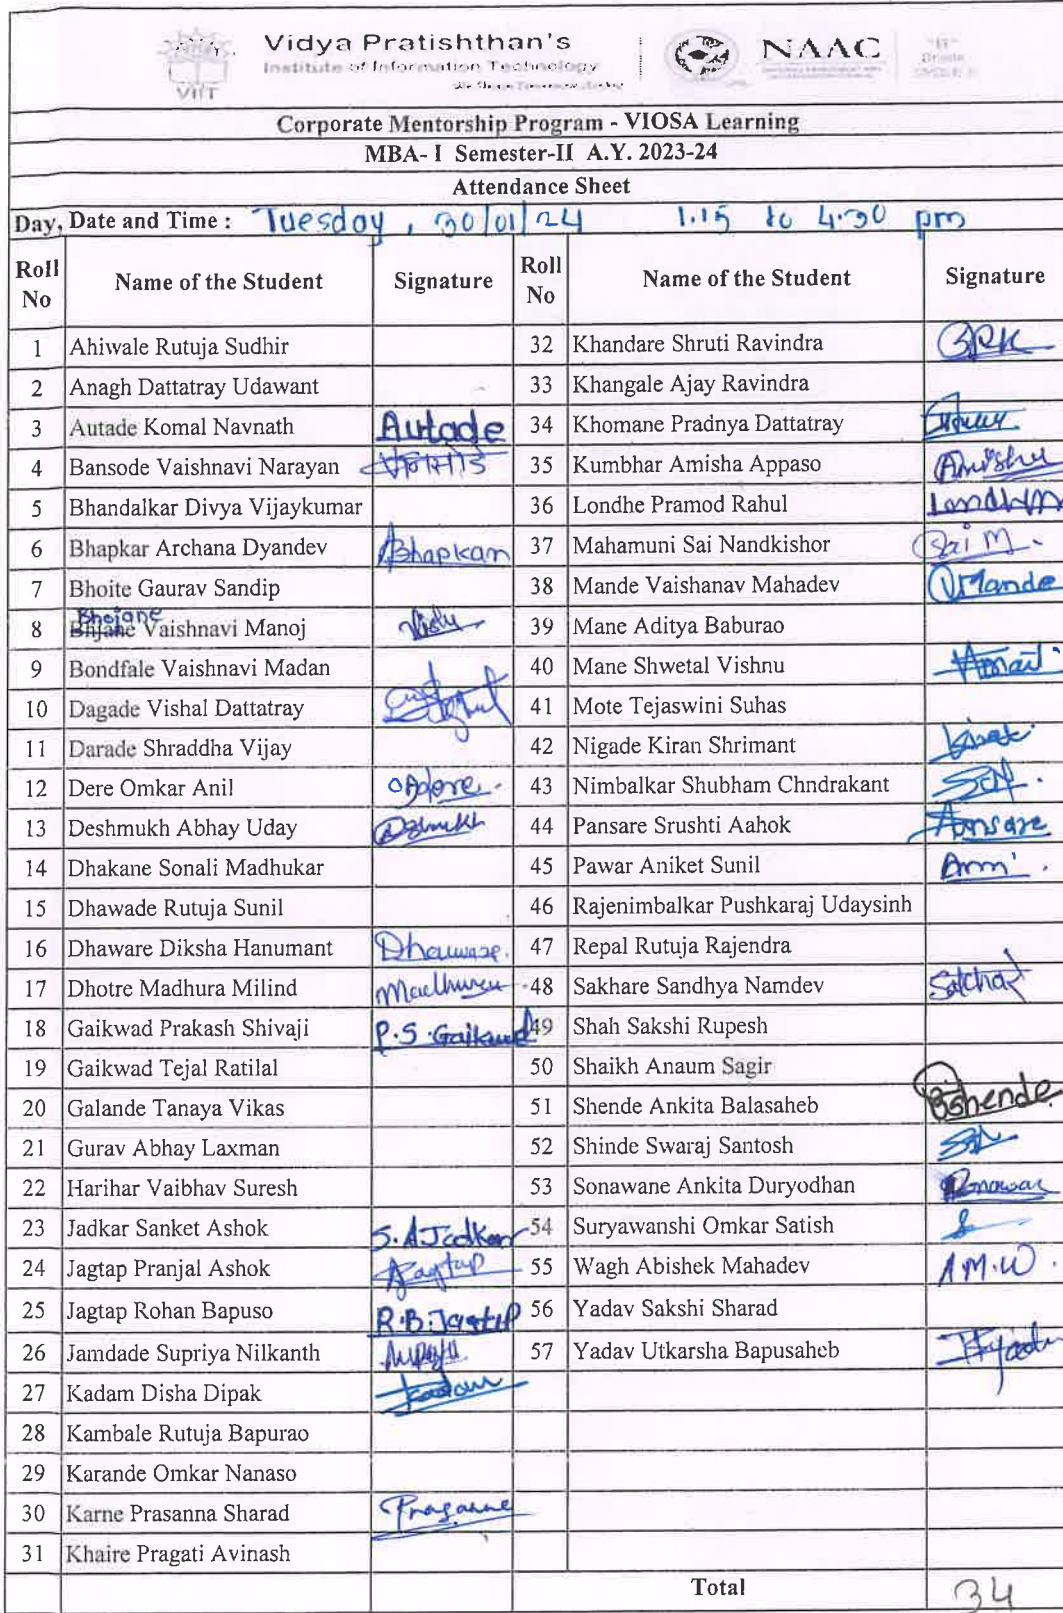 VIIT
Vidya Pratishthan's
Institute of Information Technology
NAAC
Corporate Mentorship Program - VIOSA Learning
MBA- I Semester-II A.Y. 2023-24
Attendance Sheet
Day, Date and Time : Tuesday , 30/01/24 1.15 to 4.30 pm
Roll No Name of the Student Signature Roll No Name of the Student Signature
1 Ahiwale Rutuja Sudhir 32 Khandare Shruti Ravindra SRK
2 Anagh Dattatray Udawant 33 Khangale Ajay Ravindra
3 Autade Komal Navnath Autade 34 Khomane Pradnya Dattatray
4 Bansode Vaishnavi Narayan 35 Kumbhar Amisha Appaso Amisha
5 Bhandalkar Divya Vijaykumar 36 Londhe Pramod Rahul
6 Bhapkar Archana Dyandev Bhapkar 37 Mahamuni Sai Nandkishor Sai M.
7 Bhoite Gaurav Sandip 38 Mande Vaishanav Mahadev VMande
Bhojane
8 Bhjane Vaishnavi Manoj 39 Mane Aditya Baburao
9 Bondfale Vaishnavi Madan 40 Mane Shwetal Vishnu
10 Dagade Vishal Dattatray 41 Mote Tejaswini Suhas
11 Darade Shraddha Vijay 42 Nigade Kiran Shrimant
12 Dere Omkar Anil OADere. 43 Nimbalkar Shubham Chndrakant
13 Deshmukh Abhay Uday 44 Pansare Srushti Aahok Pansare
14 Dhakane Sonali Madhukar 45 Pawar Aniket Sunil
15 Dhawade Rutuja Sunil 46 Rajenimbalkar Pushkaraj Udaysinh
16 Dhaware Diksha Hanumant Dhaware. 47 Repal Rutuja Rajendra
17 Dhotre Madhura Milind Madhura 48 Sakhare Sandhya Namdev
18 Gaikwad Prakash Shivaji P.S.Gaikwad 49 Shah Sakshi Rupesh
19 Gaikwad Tejal Ratilal 50 Shaikh Anaum Sagir
20 Galande Tanaya Vikas 51 Shende Ankita Balasaheb Bshende
21 Gurav Abhay Laxman 52 Shinde Swaraj Santosh
22 Harihar Vaibhav Suresh 53 Sonawane Ankita Duryodhan
23 Jadkar Sanket Ashok S.A.Jadkar 54 Suryawanshi Omkar Satish
24 Jagtap Pranjal Ashok Jagtap 55 Wagh Abishek Mahadev A.M.W.
25 Jagtap Rohan Bapuso R.B.Jagtap 56 Yadav Sakshi Sharad
26 Jamdade Supriya Nilkanth 57 Yadav Utkarsha Bapusaheb
27 Kadam Disha Dipak Kadam
28 Kambale Rutuja Bapurao
29 Karande Omkar Nanaso
30 Karne Prasanna Sharad Prasanna
31 Khaire Pragati Avinash
Total 34